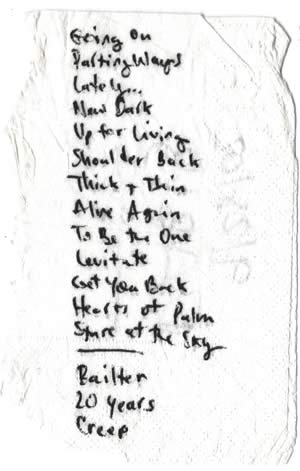 Going On
Parting Ways
Lately...
New Dark
Up for Living
Shoulder Back
Thick + Thin
Alive Again
To Be the One
Levitate
Get You Back
Hearts of Palm
Stare at the Sky
Bailter
20 Years
Creep